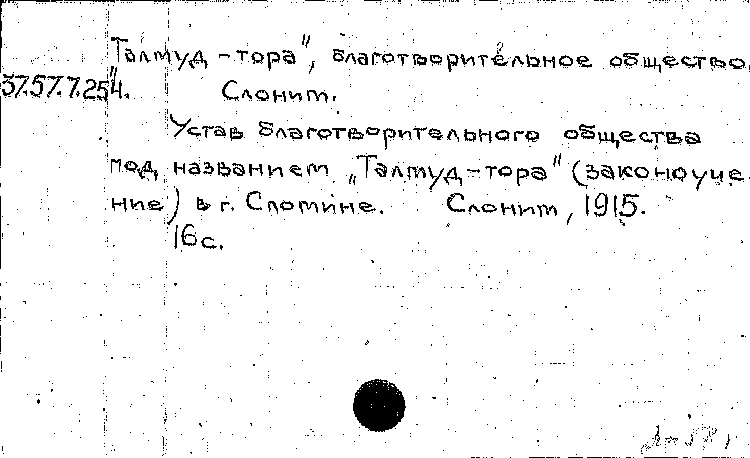 „Талмуд-тора", благотворительное общество.
37.57.7.254. Слоним.
Устав благотворительного общества
под названием „Талмуд-тора" (законоуче-
ние) в г. Слониме. Слоним, 1915.
16 с.